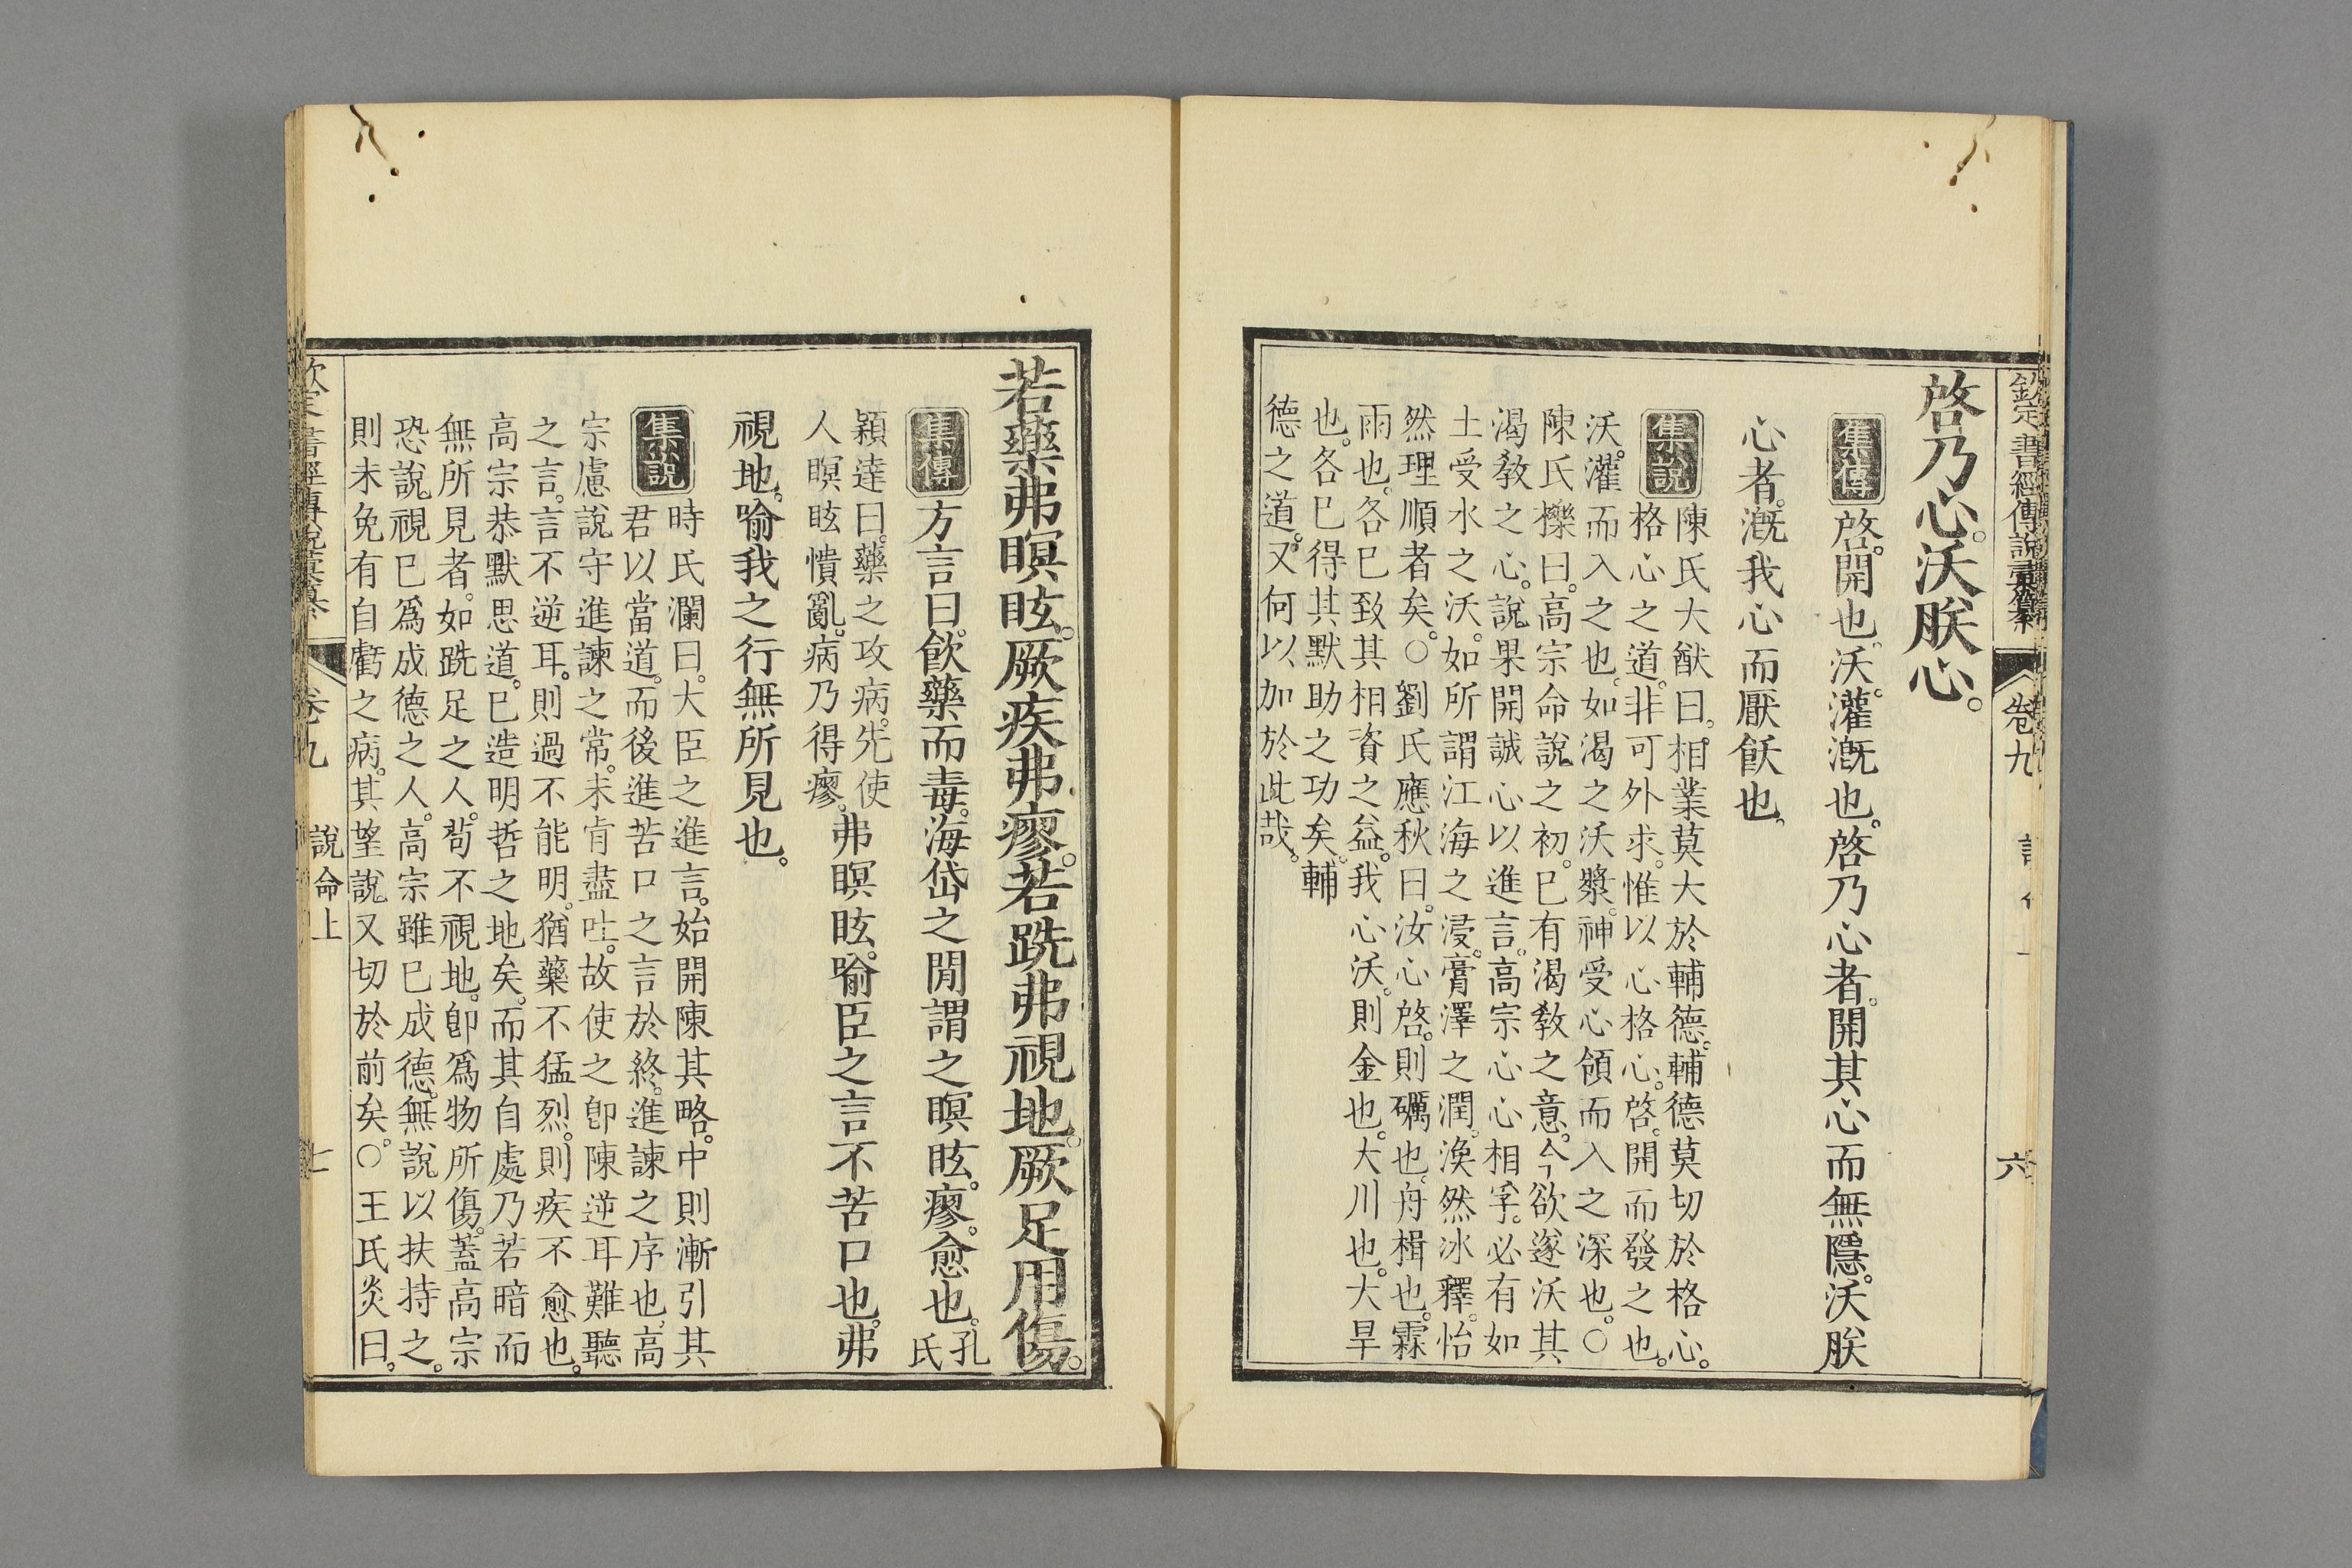 欽定書經傳說彙纂 卷九 六
啓乃心。沃朕心。
集傳 啓。開也。沃。灌漑也。啓乃心者。開其心而無隱。沃朕
心者。漑我心而厭飫也。
集說 陳氏大猷曰。相業莫大於輔德。輔德莫切於格心。
格心之道。非可外求。惟以心格心。啓。開而發之也。
沃。灌而入之也。如渴之沃漿。神受心領而入之深也。○
陳氏櫟曰。高宗命說之初。已有渴敎之意。今欲遂沃其
渴敎之心。說果開誠心以進言。高宗心心相孚。必有如
土受水之沃。如所謂江海之浸。膏澤之潤。渙然冰釋。怡
然理順者矣。○劉氏應秋曰。汝心啓。則礪也。舟楫也。霖
雨也。各已致其相資之益。我心沃。則金也。大川也。大旱
也。各已得其默助之功矣。輔
德之道。又何以加於此哉。
若藥弗瞑眩。厥疾弗瘳。若跣弗視地。厥足用傷。
集傳 方言曰。飮藥而毒。海岱之閒謂之瞑眩。瘳。愈也。孔氏
穎達曰。藥之攻病。先使
人瞑眩憒亂。病乃得瘳。弗瞑眩。喻臣之言不苦口也。弗
視地。喻我之行無所見也。
集說 時氏瀾曰。大臣之進言。始開陳其略。中則漸引其
君以當道。而後進苦口之言於終。進諫之序也。高
宗慮說守進諫之常。未肯盡吐。故使之卽陳逆耳難聽
之言。言不逆耳。則過不能明。猶藥不猛烈。則疾不愈也。
高宗恭默思道。已造明哲之地矣。而其自處乃若暗而
無所見者。如跣足之人。苟不視地。卽爲物所傷。蓋高宗
恐說視已爲成德之人。高宗雖已成德。無說以扶持之。
則未免有自虧之病。其望說又切於前矣。○王氏炎曰。
書經傳說彙纂 卷九 說命上 七